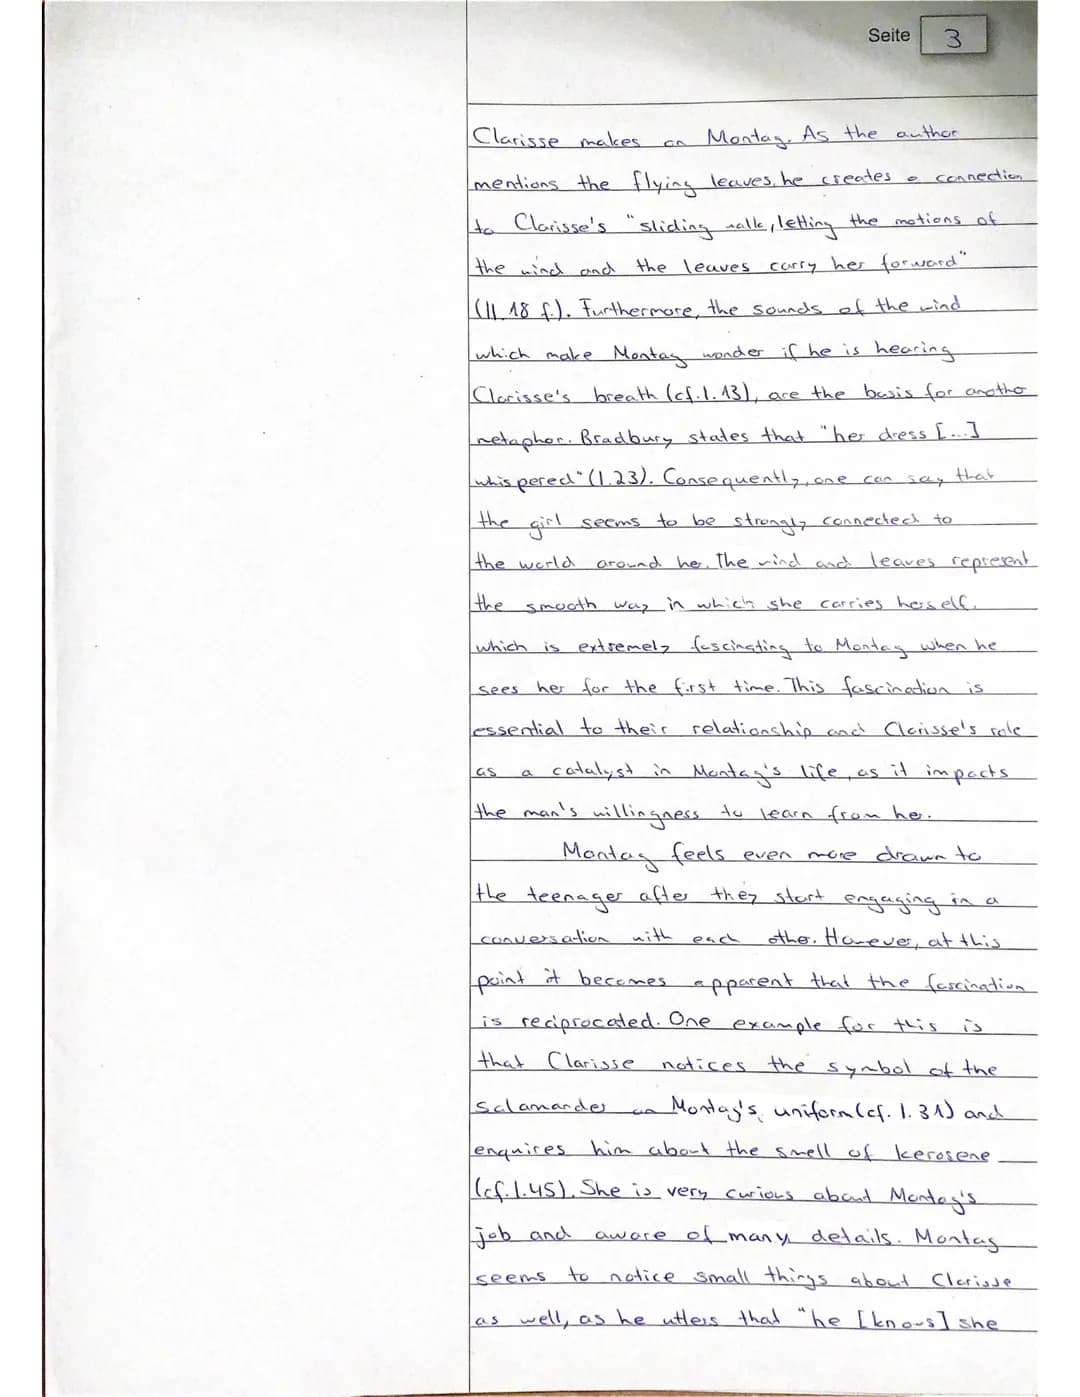 Seite 3
Clarisse makes on Montag. As the author
mentions the flying leaves, he creates a connection
to Clarisse's "sliding walk, letting the motions of
the wind and the leaves carry her forward"
(ll. 18 f.). Furthermore, the sounds of the wind
which make Montag wonder if he is hearing
Clarisse's breath (cf. l. 13), are the basis for anothe
metaphor. Bradbury states that "her dress [...]
whispered" (l. 23). Consequently, one can say that
the girl seems to be strongly connected to
the world around her. The wind and leaves represent
the smooth way in which she carries herself,
which is extremely fascinating to Montag when he
sees her for the first time. This fascination is
essential to their relationship and Clarisse's role
as a catalyst in Montag's life, as it impacts
the man's willingness to learn from her.
Montag feels even more drawn to
the teenager after they start engaging in a
conversation with each other. However, at this
point it becomes apparent that the fascination
is reciprocated. One example for this is
that Clarisse notices the symbol of the
salamander on Montag's uniform (cf. l. 31) and
enquires him about the smell of kerosene
(cf. l. 45). She is very curious about Montag's
job and aware of many details. Montag
seems to notice small things about Clarisse
as well, as he utters that "he [knows] she